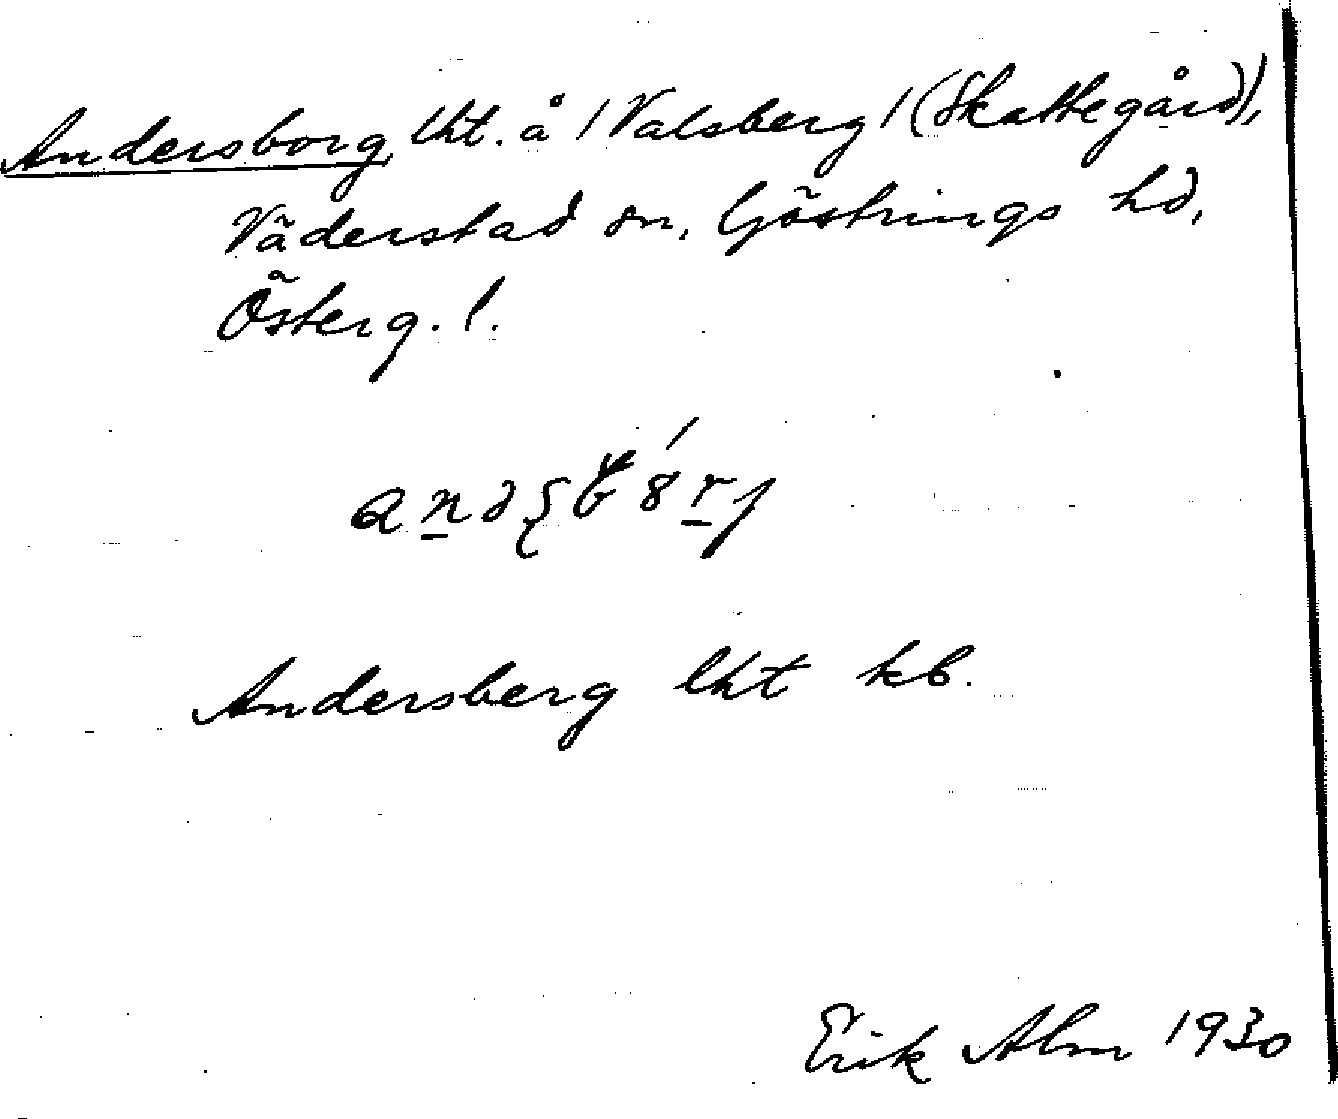 Andersborg, lht. å /Valsberg/ (Skattegård)/,
Väderstad sn, Göstrings hd,
Österg. l.
Andersberg lht kb.
Erik Alm 1930